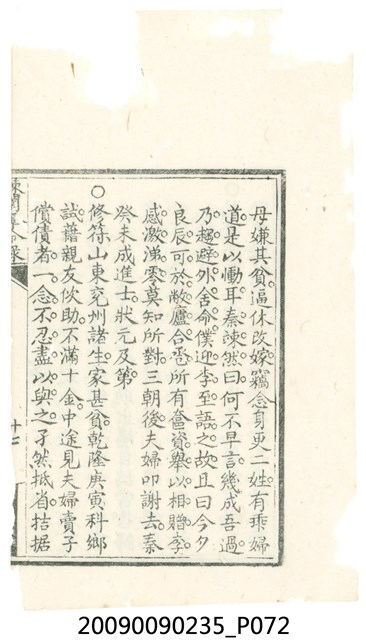 母嫌其貧。逼休改嫁。竊念身更二姓。有乖婦
道。是以慟耳。秦竦然曰。何不早言。幾成吾過。
乃趨避外舍。命僕迎李至。語之故。且曰。今夕
良辰。可於敝廬合巹。所有奩資。舉以相贈。李
感激涕零。莫知所對。三朝後夫婦叩謝去。秦
癸未成進士。狀元及第。
○修符。山東兗州諸生。家甚貧。乾隆庚寅科鄉
試。藉親友佽助不滿十金。中途見夫婦賣子
償債者。一念不忍。盡以與之。孑然抵省。拮据
十七
20090090235_P072